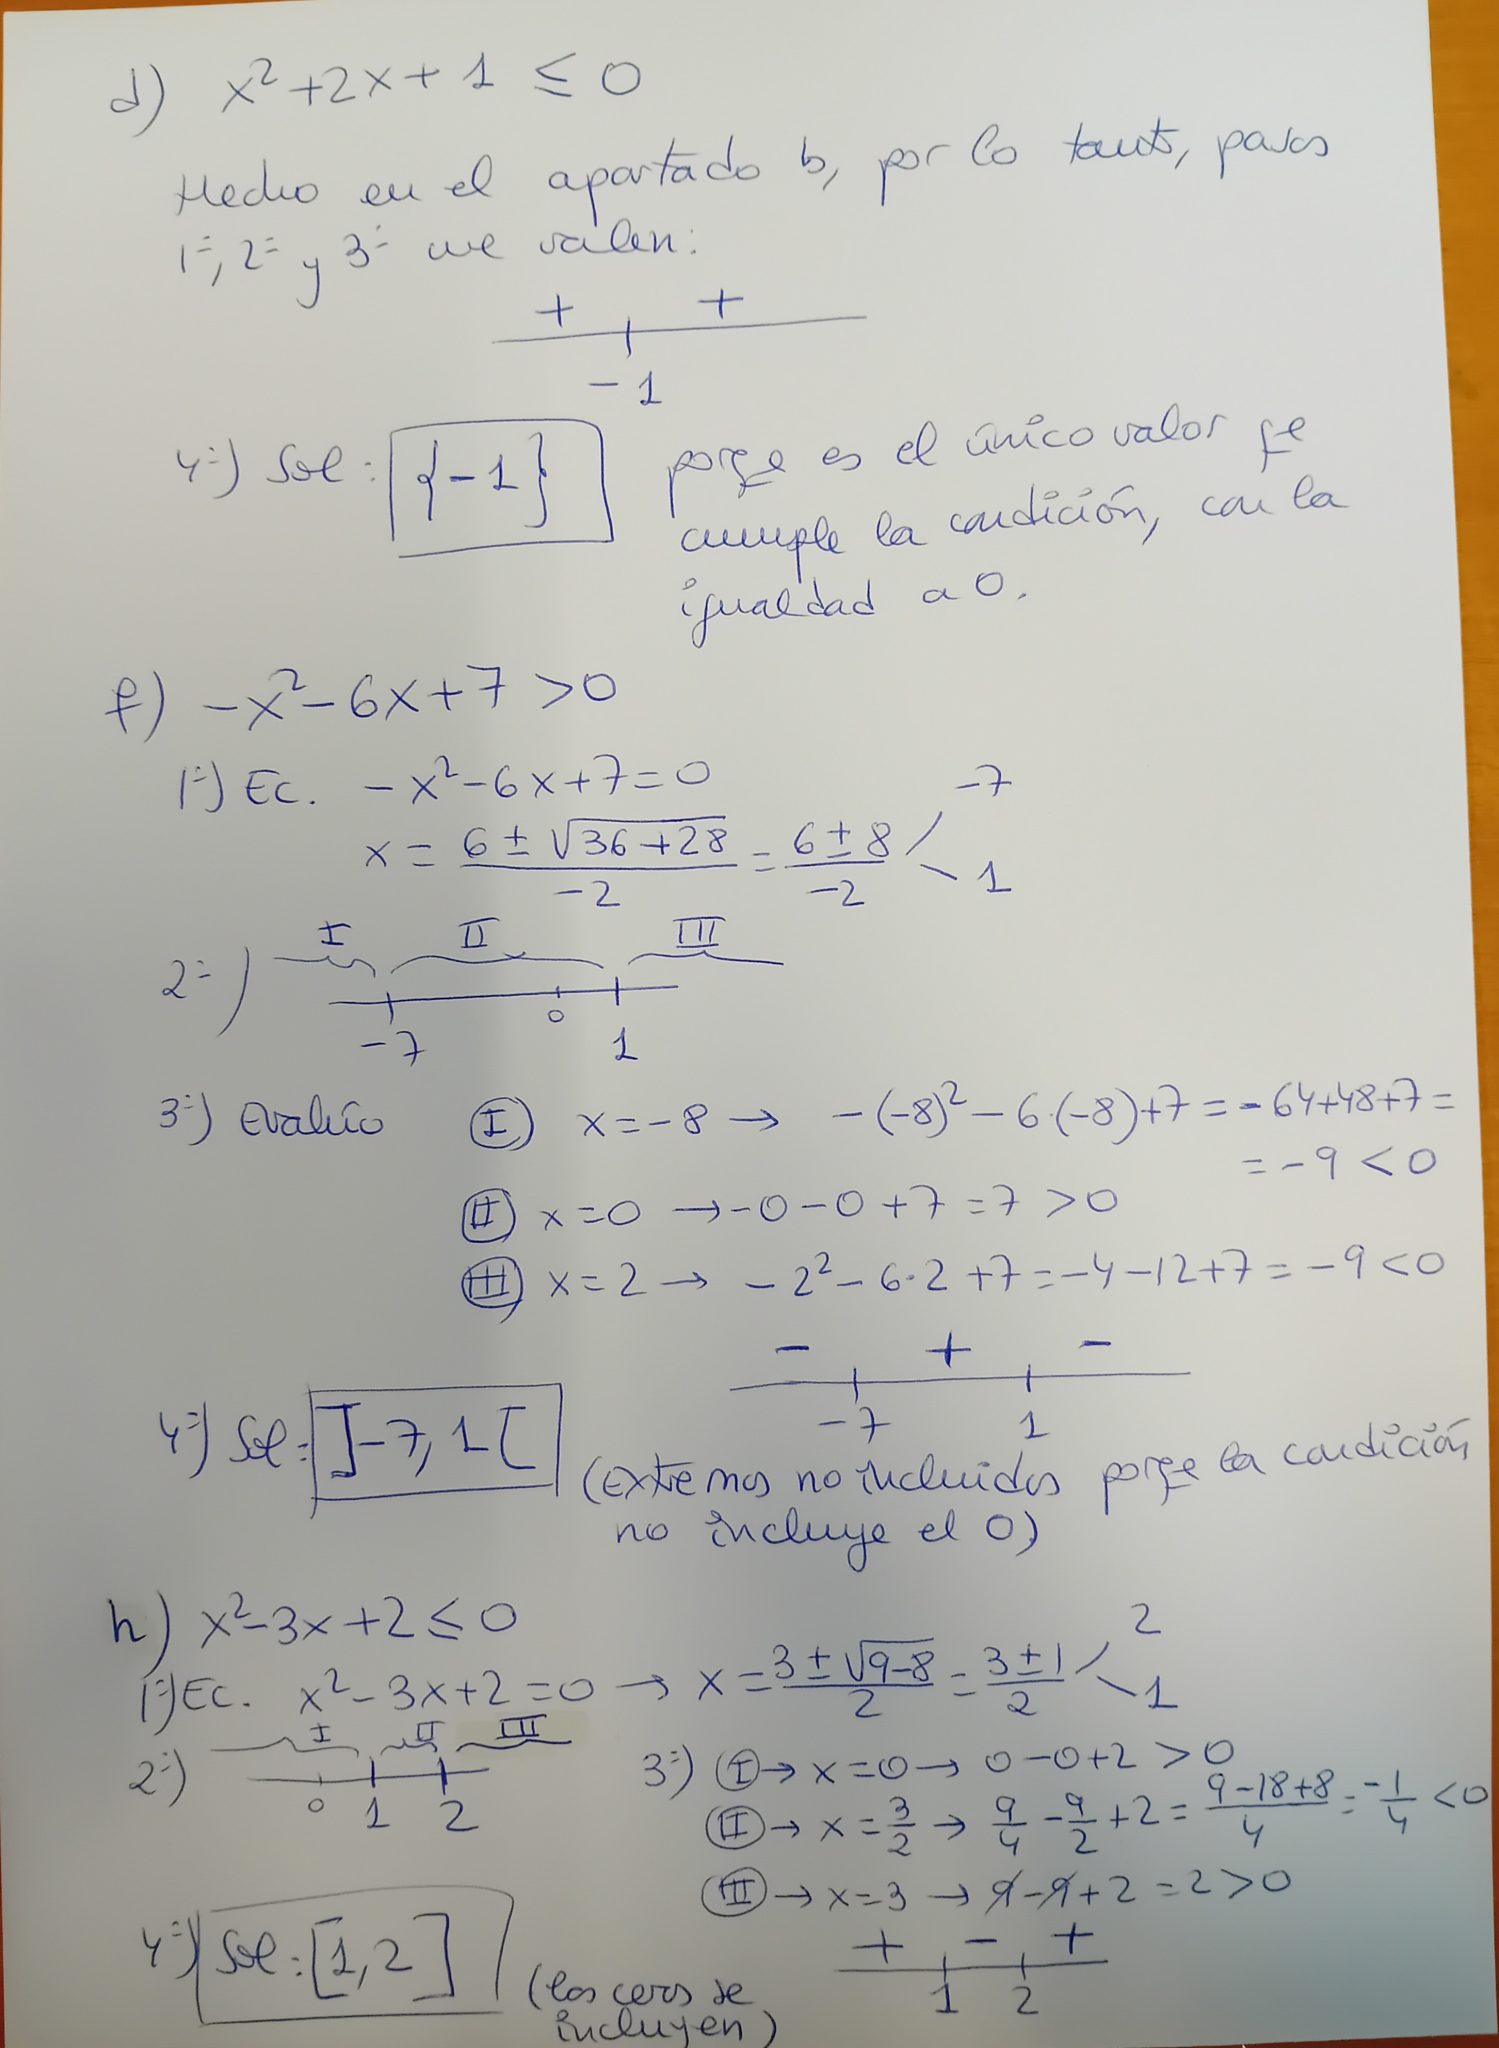 d) x²+2x+1 ≤ 0
Hecho en el apartado b, por lo tanto, pasos
1º, 2º y 3º me valen:
+ +
-1
4º) Sol: {-1} porqe es el único valor qe
cumple la condición, con la
igualdad a 0.
f) -x²-6x+7 >0
1º) Ec. -x²-6x+7=0
x = (6 ± √(36+28))/(-2) = (6 ± 8)/(-2) -7
1
I II III
2º)
-7 0 1
3º) Evalúo I x=-8 → -(-8)²-6·(-8)+7 = -64+48+7 =
= -9 < 0
II x=0 → -0-0+7=7 >0
III x=2 → -2²-6·2+7=-4-12+7=-9<0
- + -
-7 1
4º) Sol: ]-7, 1[ (Extremos no incluidos porqe la condición
no incluye el 0)
h) x²-3x+2 ≤ 0
1º) Ec. x²-3x+2=0 → x = (3 ± √(9-8))/2 = (3 ± 1)/2 2
1
I II III
2º)
0 1 2
3º) I → x=0 → 0-0+2 > 0
II → x=3/2 → 9/4 - 9/2 + 2 = (9-18+8)/4 = -1/4 < 0
III → x=3 → 9-9+2 = 2>0
+ - +
1 2
4º) Sol: [1,2] (los ceros se
incluyen)